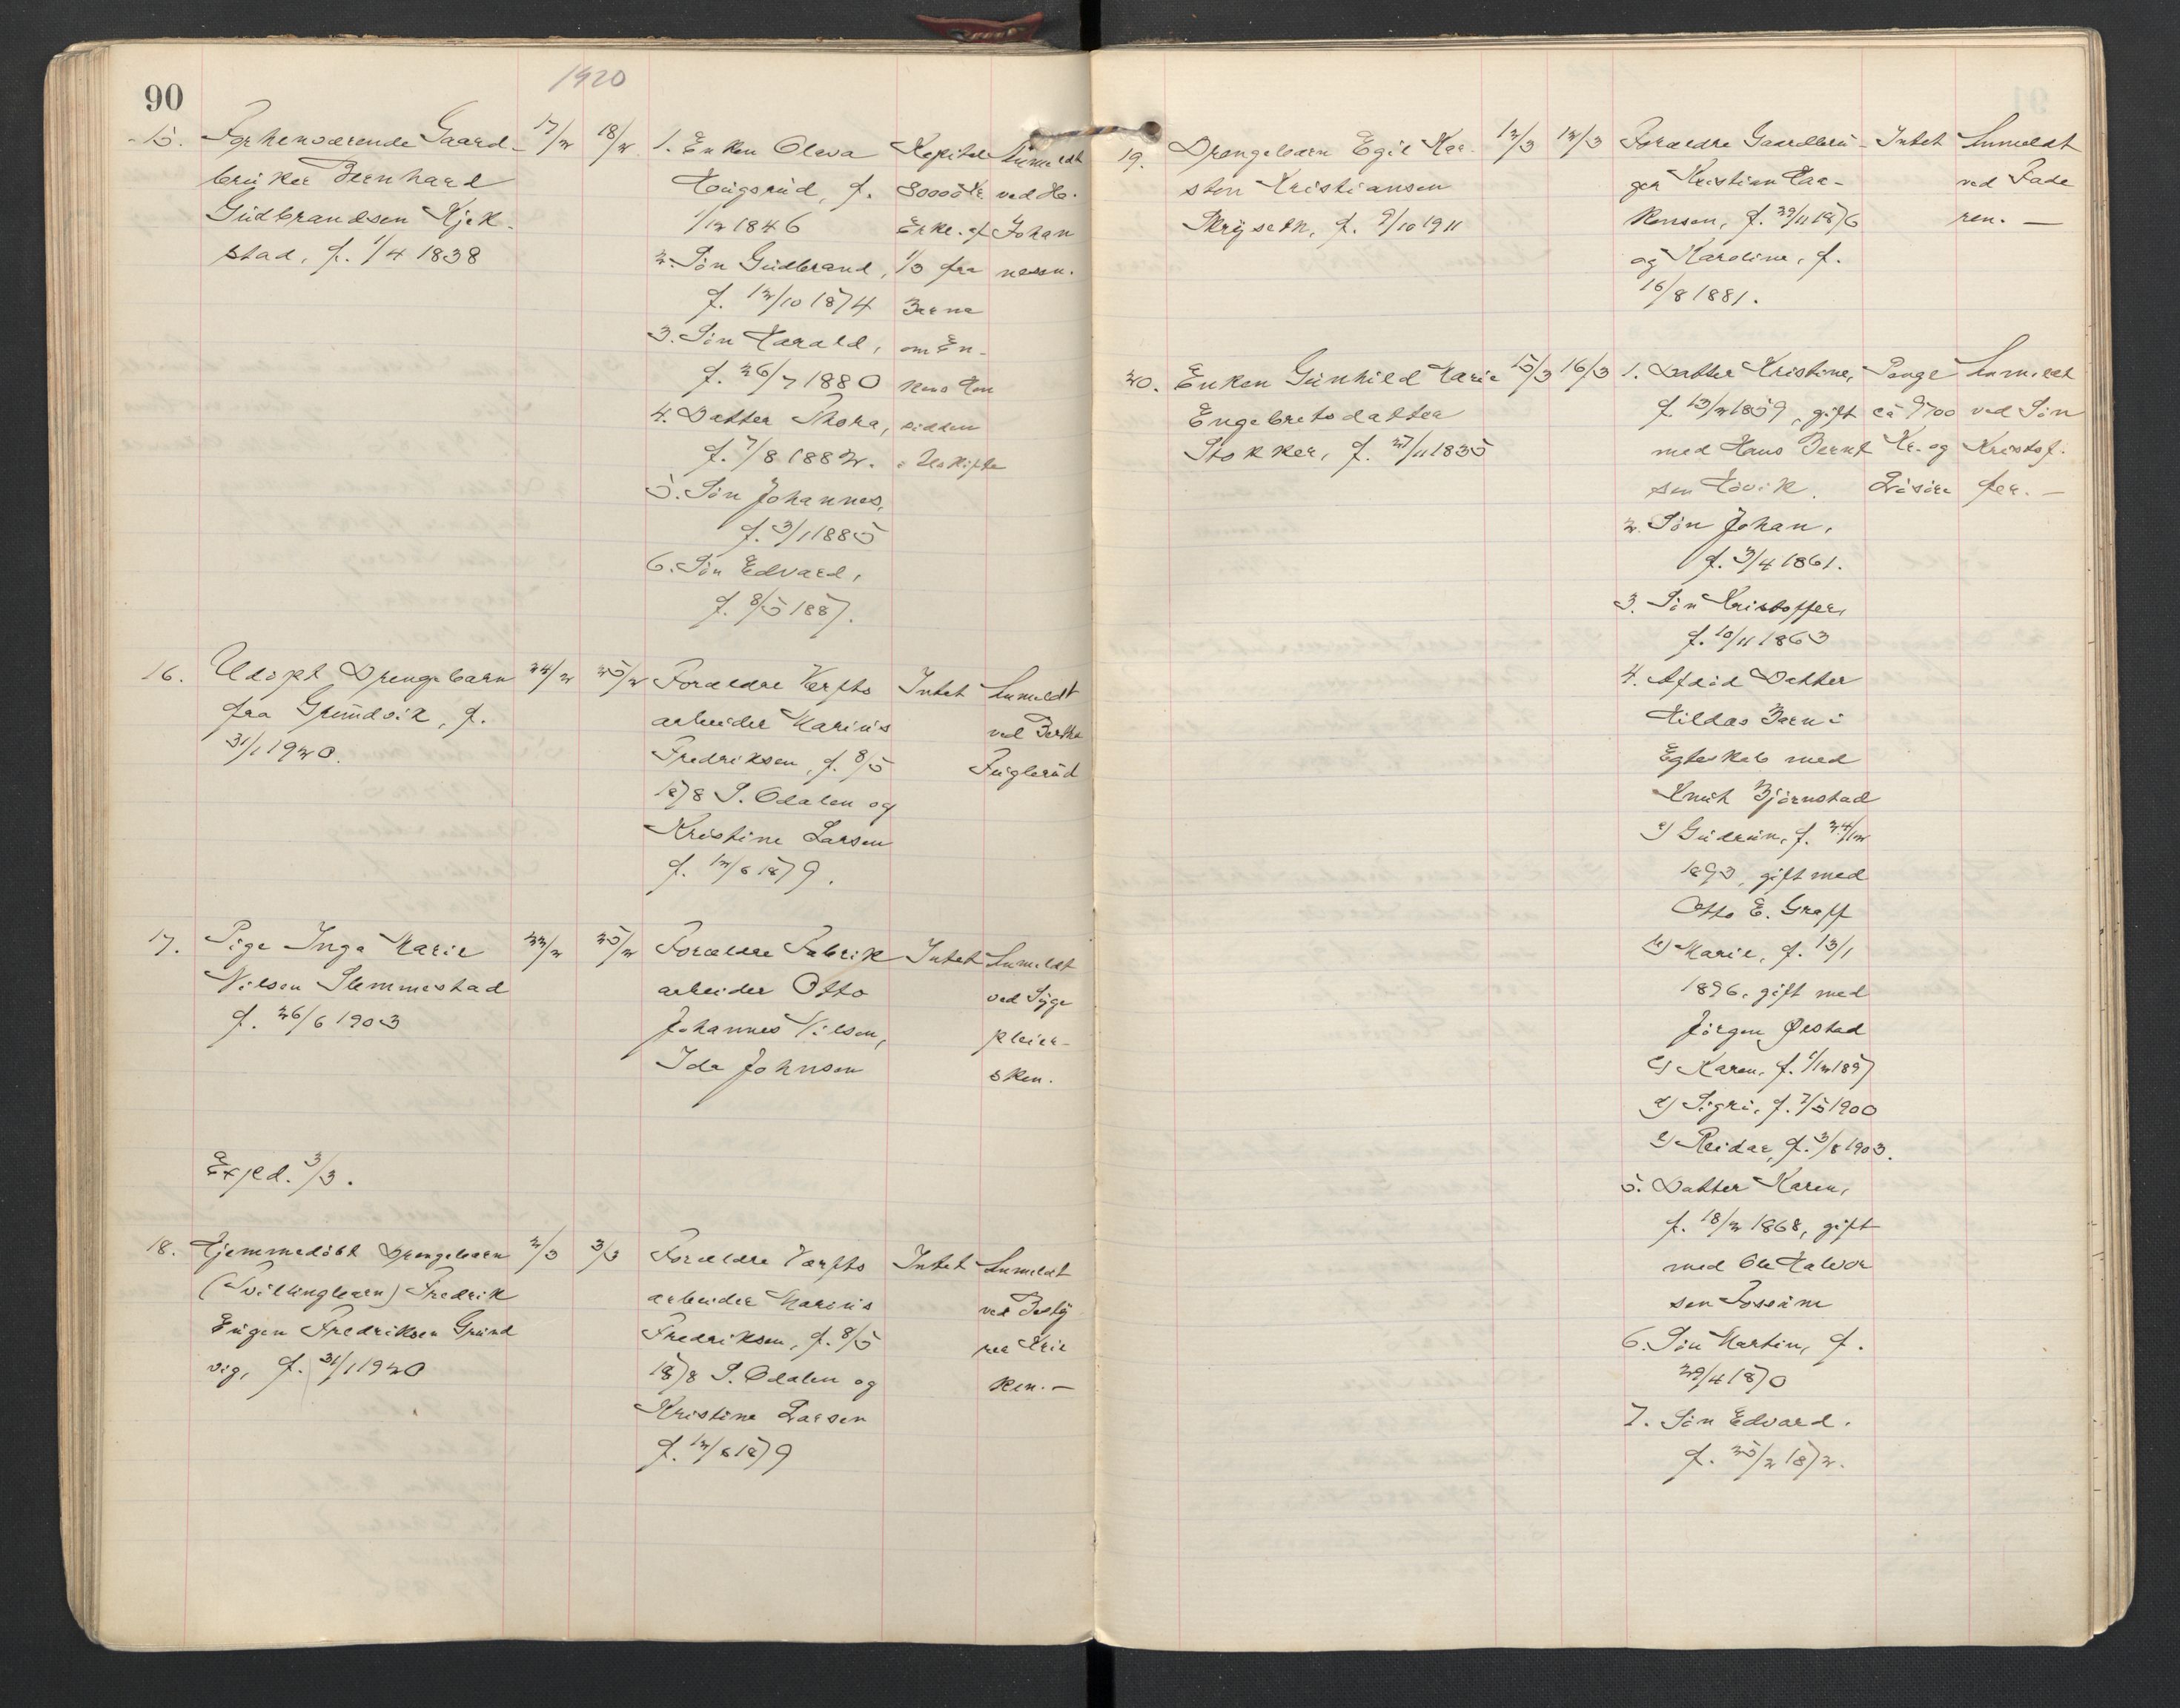 90
1920
15. Forhenværende Gaard-
bruker Bernhard
Gudbrandsen Kjek-
stad, f. 1/4 1838
17/2
18/2
1. Enken Oleva
Haugsrud, f.
1/12 1846
2. Søn Gudbrand,
f. 12/10 1874
3. Søn Harald,
f. 26/7 1880
4. Datter Thora,
f. 7/8 1882.
5. Søn Johannes,
f. 3/1 1885
6. Søn Edvard,
f. 8/5 1887.
Kapital
80000 Kr.
Enke. af
1/3 fra
Barna
om En-
kens Hen
sidden
i Uskifte
Anmeldt
ved
Johan
nesen.
16. Udøpt Drengebarn
fra Grundvik, f.
31/1 1920.
24/2
25/2
Forældre Verfts
arbeider Marius
Fredriksen, f. 8/5
1878 S. Odalen og
Kristine Larsen
f. 12/6 1879.
Intet
Anmeldt
ved Berthe
Fuglerud
17. Pige Inga Marie
Nilsen Slemmestad
f. 26/6 1903
22/2
25/2
Forældre Fabrik
arbeider Otto
Johannes Nilsen,
Ida Johnsen
Intet
Anmeldt
ved Syge
pleier-
sken.
Exped. 3/3.
18. Hjemmedøbt Drengebarn
(Tvillingbarn) Fredrik
Eugen Fredriksen Grund
vig, f. 31/1 1920
2/3
3/3
Forældre Verfts
arbeider Marius
Fredriksen, f. 8/5
1878 S. Odalen og
Kristine Larsen
f. 12/6 1879
Intet
Anmeldt
ved Besty
rer Erik
sen. —
19. Drengebarn Egil Kar-
sten Kristiansen
Skryseth, f. 9/10 1911
12/3
12/3
Forældre Gaardbru-
ger Kristian Haa-
kensen, f. 29/11 1876
og Karoline, f.
16/8 1881.
Intet
Anmeldt
ved Fade
ren. —
20. Enken Gunhild Marie
Engebretsdatter
Stokker, f. 27/11 1835
15/3
16/3
1. Datter Kristine,
f. 13/2 1859, gift
med Hans Bernt
sen Høvik.
2. Søn Johan,
f. 3/4 1861.
3. Søn Kristoffer,
f. 10/11 1863
4. Afdød Datter
Hildas Barn i
Egteskab med
Knut Bjørnstad
a) Gudrun, f. 24/12
1893, gift med
Otto E. Graff
b) Marie, f. 13/1
1896, gift med
Jørgen Ørstad
c) Karen, f. 1/12 1897
d) Sigri, f. 7/5 1900
e) Reidar, f. 3/8 1903.
5. Datter Karen,
f. 18/2 1868, gift
med Ole Halvor
sen Fossum
6. Søn Martin, f.
29/4 1870
7. Søn Edvard.
f. 25/2 1872.
Penge
ca 9700
Kr. og
Løsøre
Anmeldt
ved Søn
Kristof-
fer. —